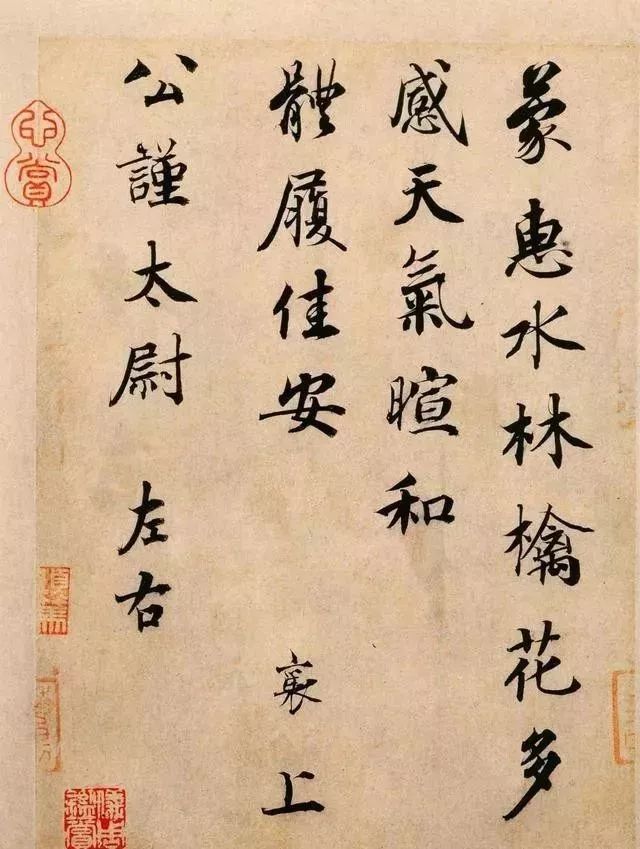 蒙惠水林檎花多
感天氣暄和
體履佳安
襄上
公謹太尉 左右